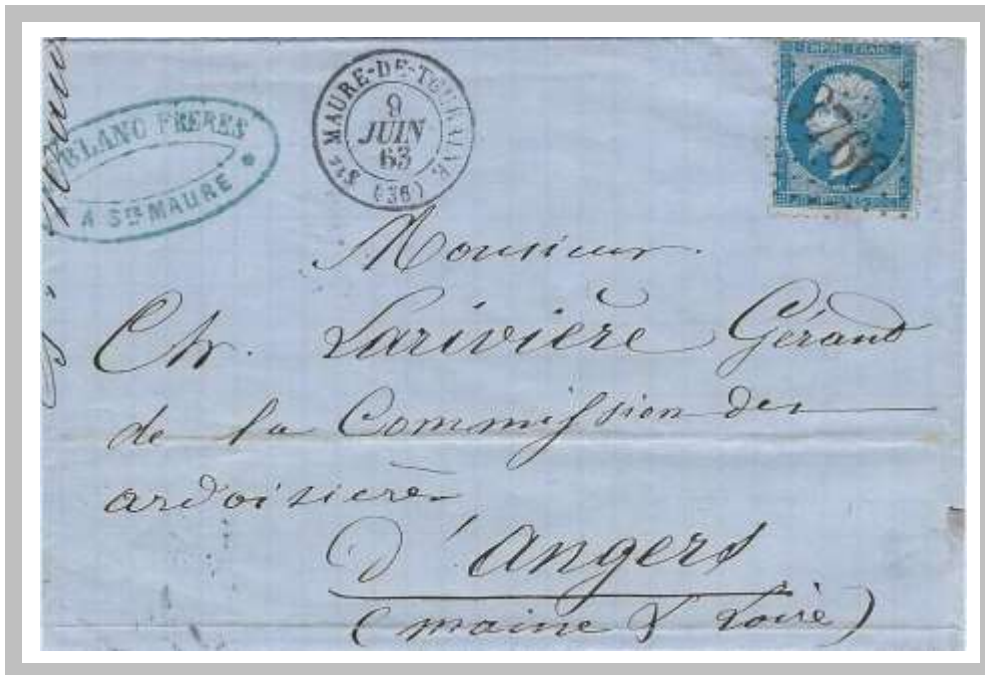 BLANC FRERES
A STE MAURE
STE MAURE-DE-TOURAINE
9
JUIN
63
(36)
EMPIRE FRANC
Monsieur
Chr. Larivière Gérant
de la Commission des
ardoisières
d'Angers
(maine & Loire)